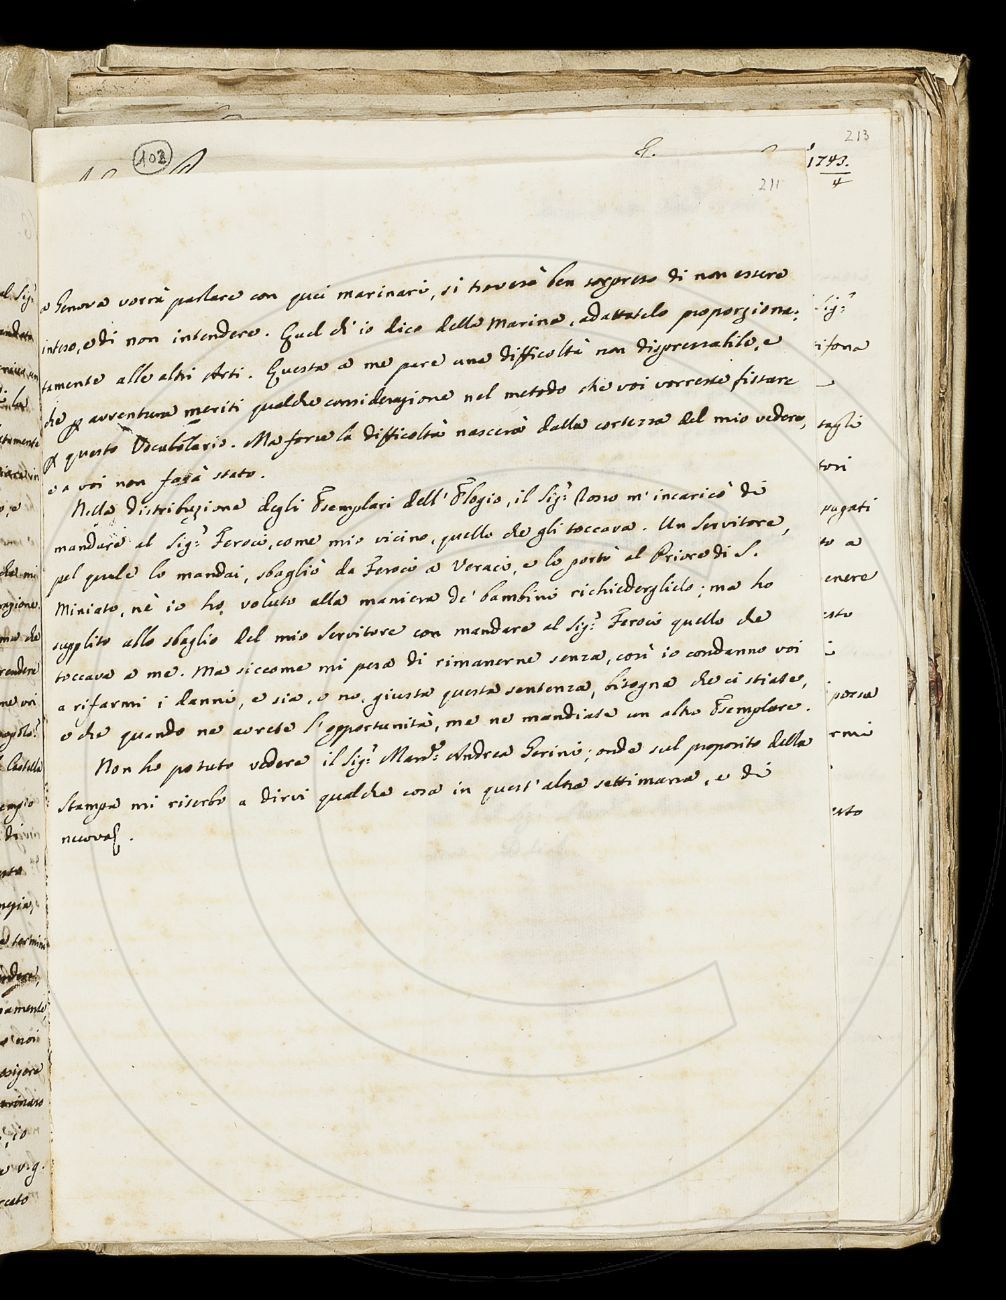 213
102
1743.
4
211
a Genova vorrà parlare con quei marinari, si troverà ben sorpreso di non essere
inteso, e di non intendere. Quel ch' io dico della Marina, adattatelo proporziona-
tamente alle altri Arti. Questa a me pare una difficoltà non disprezzabile, e
che p avventura meriti qualche considerazione nel metodo che voi vorreste fissare
p questo Vocabolario. Ma forse la difficoltà nascerà dalla cortezza del mio vedere,
e a voi non farà stato.
Nella distribuzione degli Esemplari dell' Elogio, il Sig.r Rosso m' incaricò di
mandare al Sig.r Feroci, come mio vicino, quello che gli toccava. Un Servitore,
pel quale lo mandai, sbagliò da Feroci a Veraci, e lo portò al Priore di S.
Miniato, nè io ho voluto alla maniera de' bambini richiederglielo; ma ho
supplito allo sbaglio del mio Servitore con mandare al Sig.r Feroci quello che
toccava a me. Ma siccome mi pesa di rimanerne senza, così io condanno voi
a rifarmi i danni, e sia, o no, giusta questa sentenza, bisogna che ci stiate,
e che quando ne avrete l' opportunità, me ne mandiate un altro Esemplare.
Non ho potuto vedere il Sig.r March.e Andrea Gerini; onde sul proposito della
Stampa mi riserbo a dirvi qualche cosa in quest' altra settimana, e di
nuovo
al Sig.r
Castella
a termini
Sig.r
tagli
tori
pagati
to a
enere